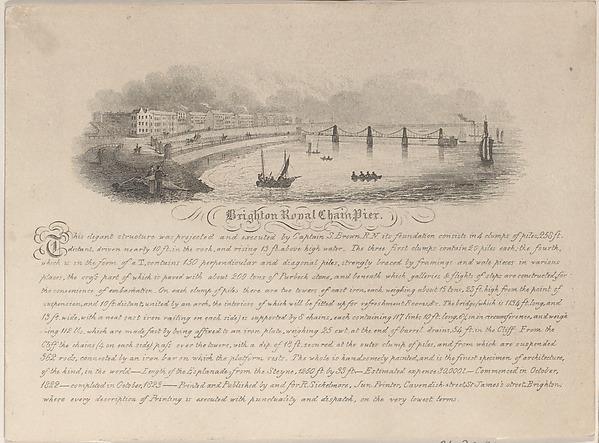 Brighton Royal Chain Pier.
This elegant structure was projected and executed by Captain S. Brown, R.N. its foundation consists in 4 clumps of piles, 258 ft.
distant, driven nearly 10 ft. in the rock, and rising 13 ft. above high water. The three first clumps contain 20 piles each, the fourth,
which is in the form of a T, contains 150 perpendicular and diagonal piles, strongly braced by framings and wale pieces in various
places, the crofs part of which is paved with about 200 tons of Purbeck stone, and beneath which galleries & flights of steps are constructed, for
the convenience of embarkation. On each clump of piles there are two towers of cast iron, each weighing about 15 tons, 25 ft. high from the point of
suspension, and 10 ft. distant, united by an arch, the interiors of which will be fitted up for refreshment Rooms &c. The bridge, (which is 1134 ft. long, and
13 ft. wide, with a neat cast iron railing on each side,) is supported by 8 chains, each containing 117 links 10 ft. long, 6¼ in circumference, and weigh-
ing 112 lbs, which are made fast by being affixed to an iron plate, weighing 25 cwt. at the end of barrel drains, 54 ft. in the Cliff. From the
Cliff the chains (4 on each side) pafs over the towers, with a dip of 18 ft. secured at the outer clump of piles, and from which are suspended
362 rods, connected by an iron bar on which the platform rests. The whole is handsomely painted, and is the finest specimen of architecture,
of the kind, in the world — Length of the Esplanade, from the Steyne, 1250 ft. by 33 ft. — Estimated expence 30,000l. — Commenced in October,
1822 — completed in October, 1823 — Printed and Published by and for R. Sickelmore, Jun. Printer, Cavendish-street, St James's street, Brighton,
where every description of Printing is executed with punctuality and dispatch, on the very lowest terms.